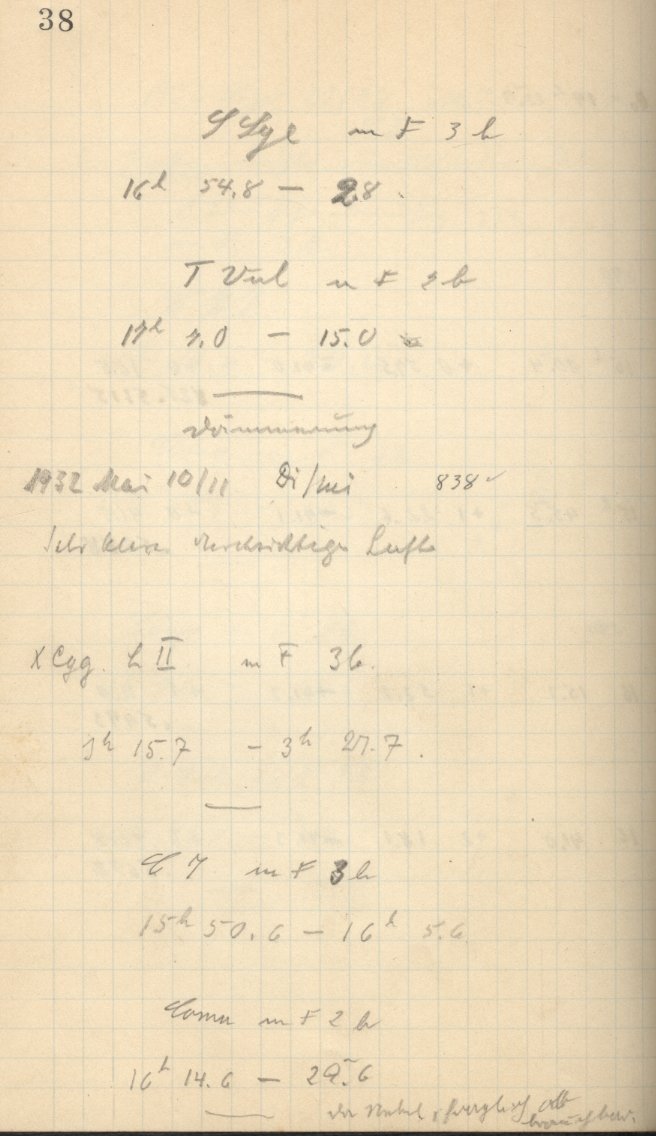 38
S Sge m F 3 b
16h 54.8 — 2.8
T Vul m F 2 b
17h 7.0 — 15.0
Dämmerung
1932 Mai 10/11 Di/Mi 838
Sehr klare durchsichtige Luft
X Cyg. h II m F 3 b.
3h 15.7 – 3h 27.7.
C 7 m F 3 b
15h 50.6 — 16h 5.6
Coma m F 2 b
16h 14.6 — 29.6
der